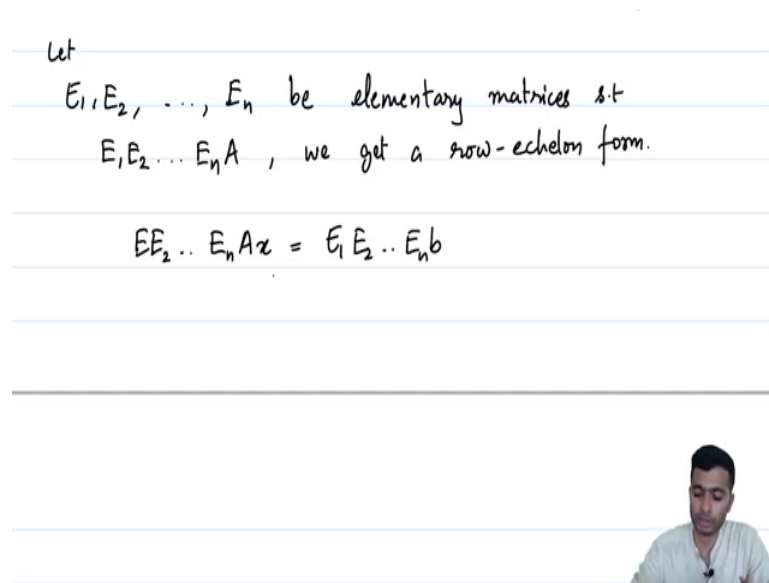 Let
E₁, E₂, ..., Eₙ be elementary matrices s.t
E₁E₂... EₙA, we get a row-echelon form.
EE₂.. EₙAx = E₁E₂..Eₙb